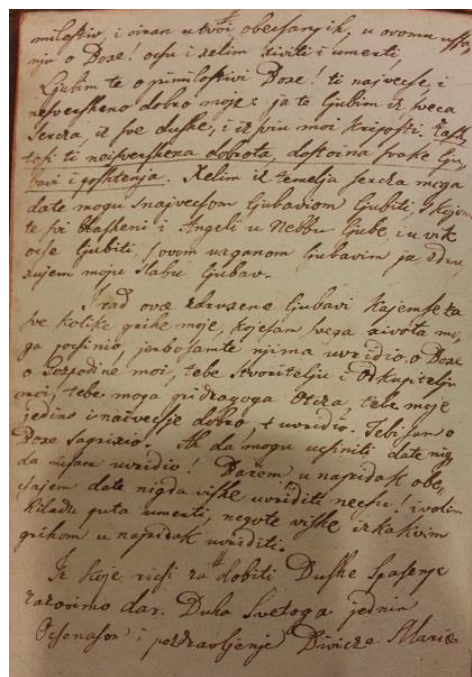 milostiv, i viran u tvoi obechanjih, u ovomu uffa,
nju o Boxe! ochu i xelim xiviti i umerti,
Ljubim te o primilostivi Boxe! ti najvechse, i
neisversheno dobro moje: ja te ljubim iz svega
Serdca, iz sve dushe, i iz sviu moi kriposti. Kakko
tosi ti neisvershena dobrota, dostoina svake lju,
bavi i poshtenja. Xelim iz temelja serdca moga
date mogu s najvechom ljubaviom ljubiti, s kojom
te svi blaxeni i Angeli u Nebbu ljube, i u vik
oche ljubiti, s ovom uxganom ljubavim ja zdru,
xujem moju slabu ljubav.
I rad ove zdruxene ljubavi kajemse za
sve kolike grihe moje, kojesam svega xivota mo,
ga pochinio, jerbosamte njima uvridio o Boxe
o Gospodine moi, tebe stvoritelju i Odkupitelju
moi, tebe moga pridragoga Otcza, tebe moje
jedino i naivechje dobro, uvridio. Tebi sam o
Boxe sagrixio! Ah da mogu uchiniti date nig,
da nisam uvridio! Barem u napridak obe,
chajem date nigda vishe uvriditi nechu! i volim
hiladu puta umerti, negote vishe iz kakvim
grihom u napridak uvriditi.
Iz koje richi za dobiti Dushe Spasenje
zazovimo dar Duha Svetoga jednim
Ochenashom i pozdravljenje Divicze Marie.